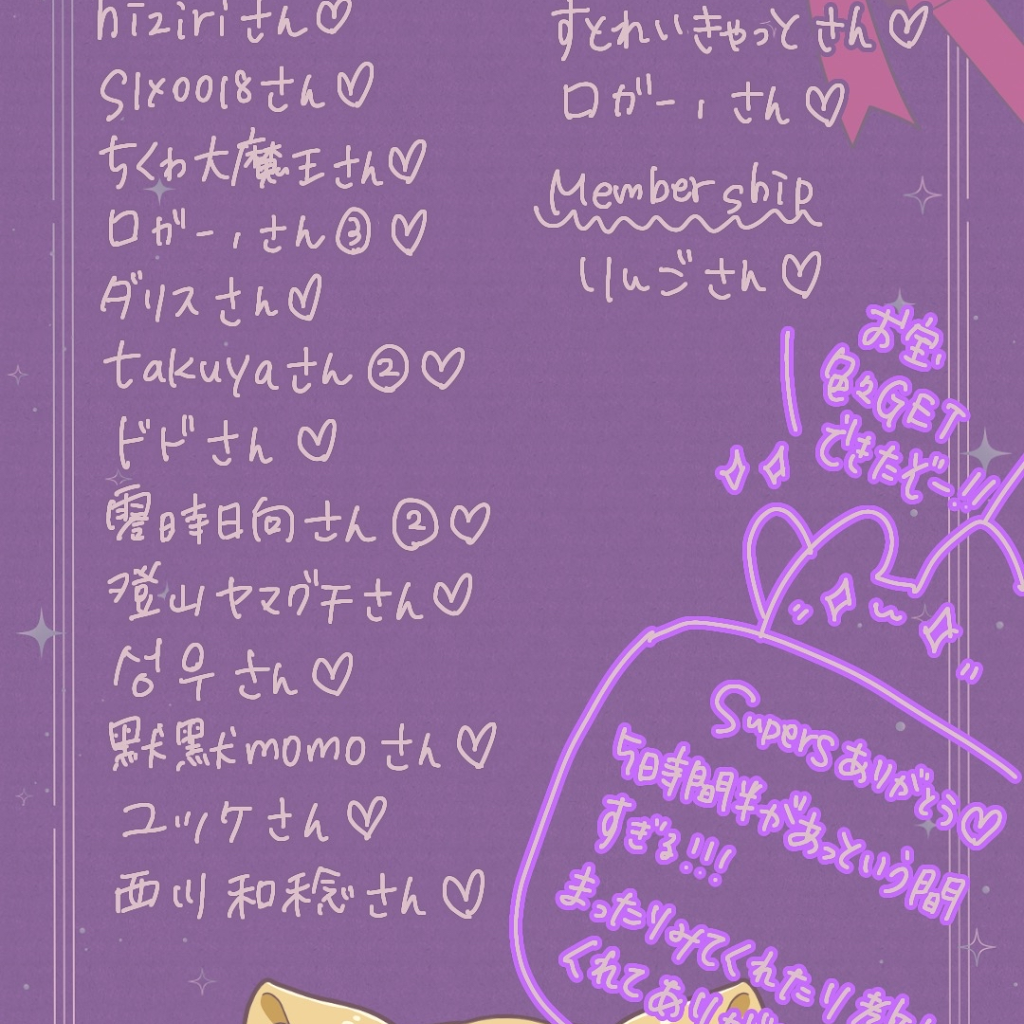 hiziriさん♡
SIX0018さん♡
ちくわ大魔王さん♡
ロガーıさん③♡
ダリスさん♡
takuyaさん②♡
ドドさん♡
霊時日向さん②♡
登山ヤマグチさん♡
성우さん♡
默默momoさん♡
ユッケさん♡
西川和稔さん♡
すとれいきゃっとさん♡
ロガーıさん♡
Membership
りんごさん♡
お宝
色々GET
できたぞー!!
Supersありがとう♡
5時間半があっという間
すぎる!!!
まったりみてくれたり教
くれてありが